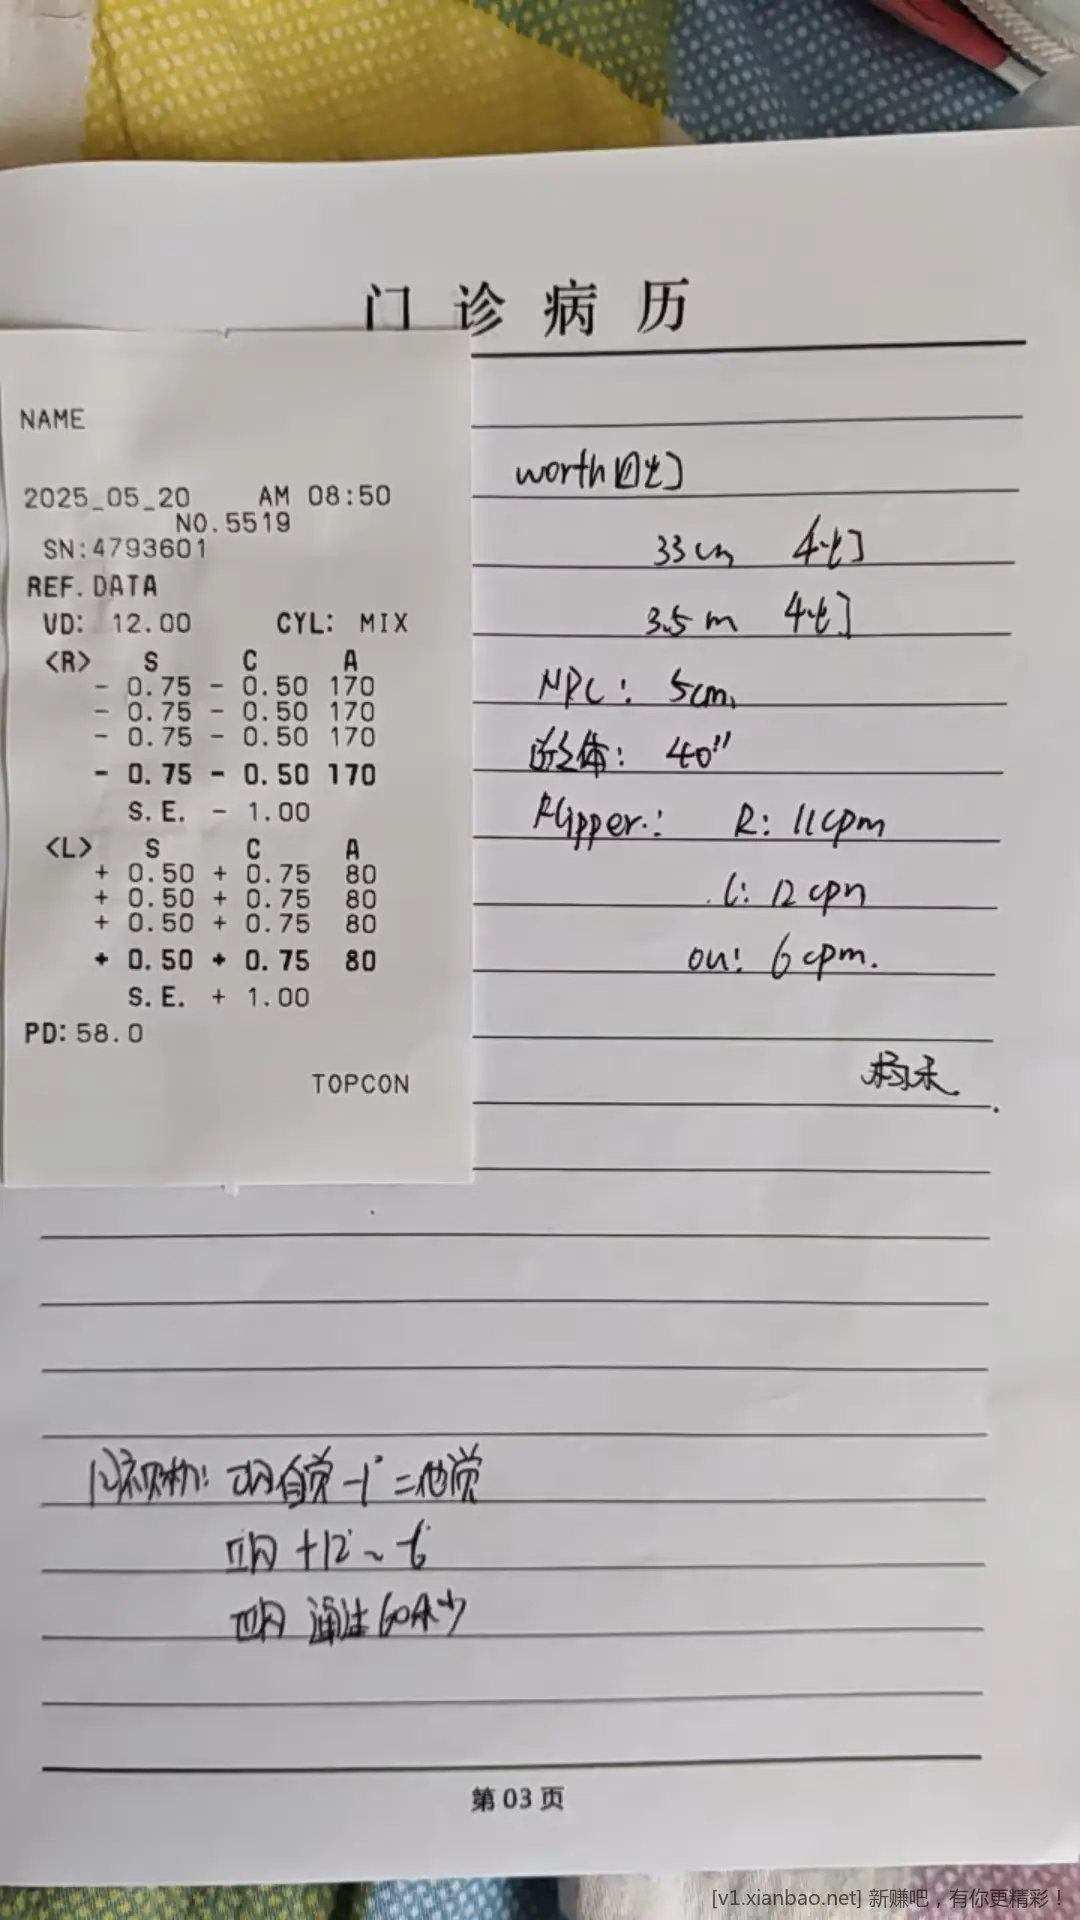 门诊病历
NAME
2025_05_20 AM 08:50
NO.5519
SN:4793601
REF.DATA
VD: 12.00 CYL: MIX
<R> S C A
- 0.75 - 0.50 170
- 0.75 - 0.50 170
- 0.75 - 0.50 170
- 0.75 - 0.50 170
S.E. - 1.00
<L> S C A
+ 0.50 + 0.75 80
+ 0.50 + 0.75 80
+ 0.50 + 0.75 80
+ 0.50 + 0.75 80
S.E. + 1.00
PD:58.0
TOPCON
worth四灯
33cm 4灯
3.5m 4灯
NPC: 5cm
立体: 40"
Flipper: R: 11cpm
L: 12cpm
ou: 6cpm.
同视机: 自觉 -1° = 他觉
+12° ~ -6°
第 03 页
[v1.xianbao.net] 新赚吧，有你更精彩！